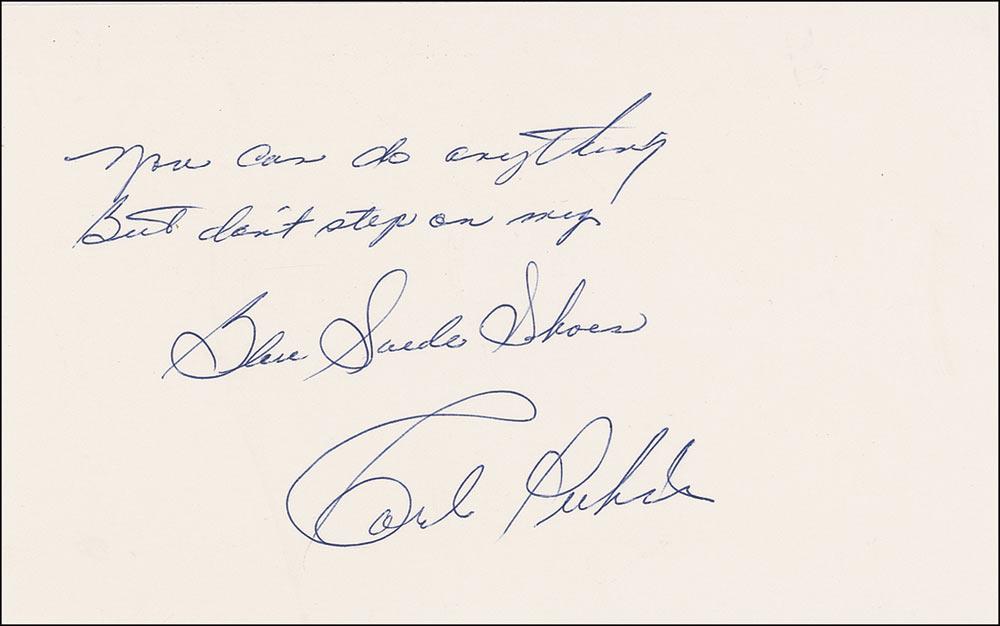 You can do anything
But don't step on my
Blue Suede Shoes
Carl Perkins